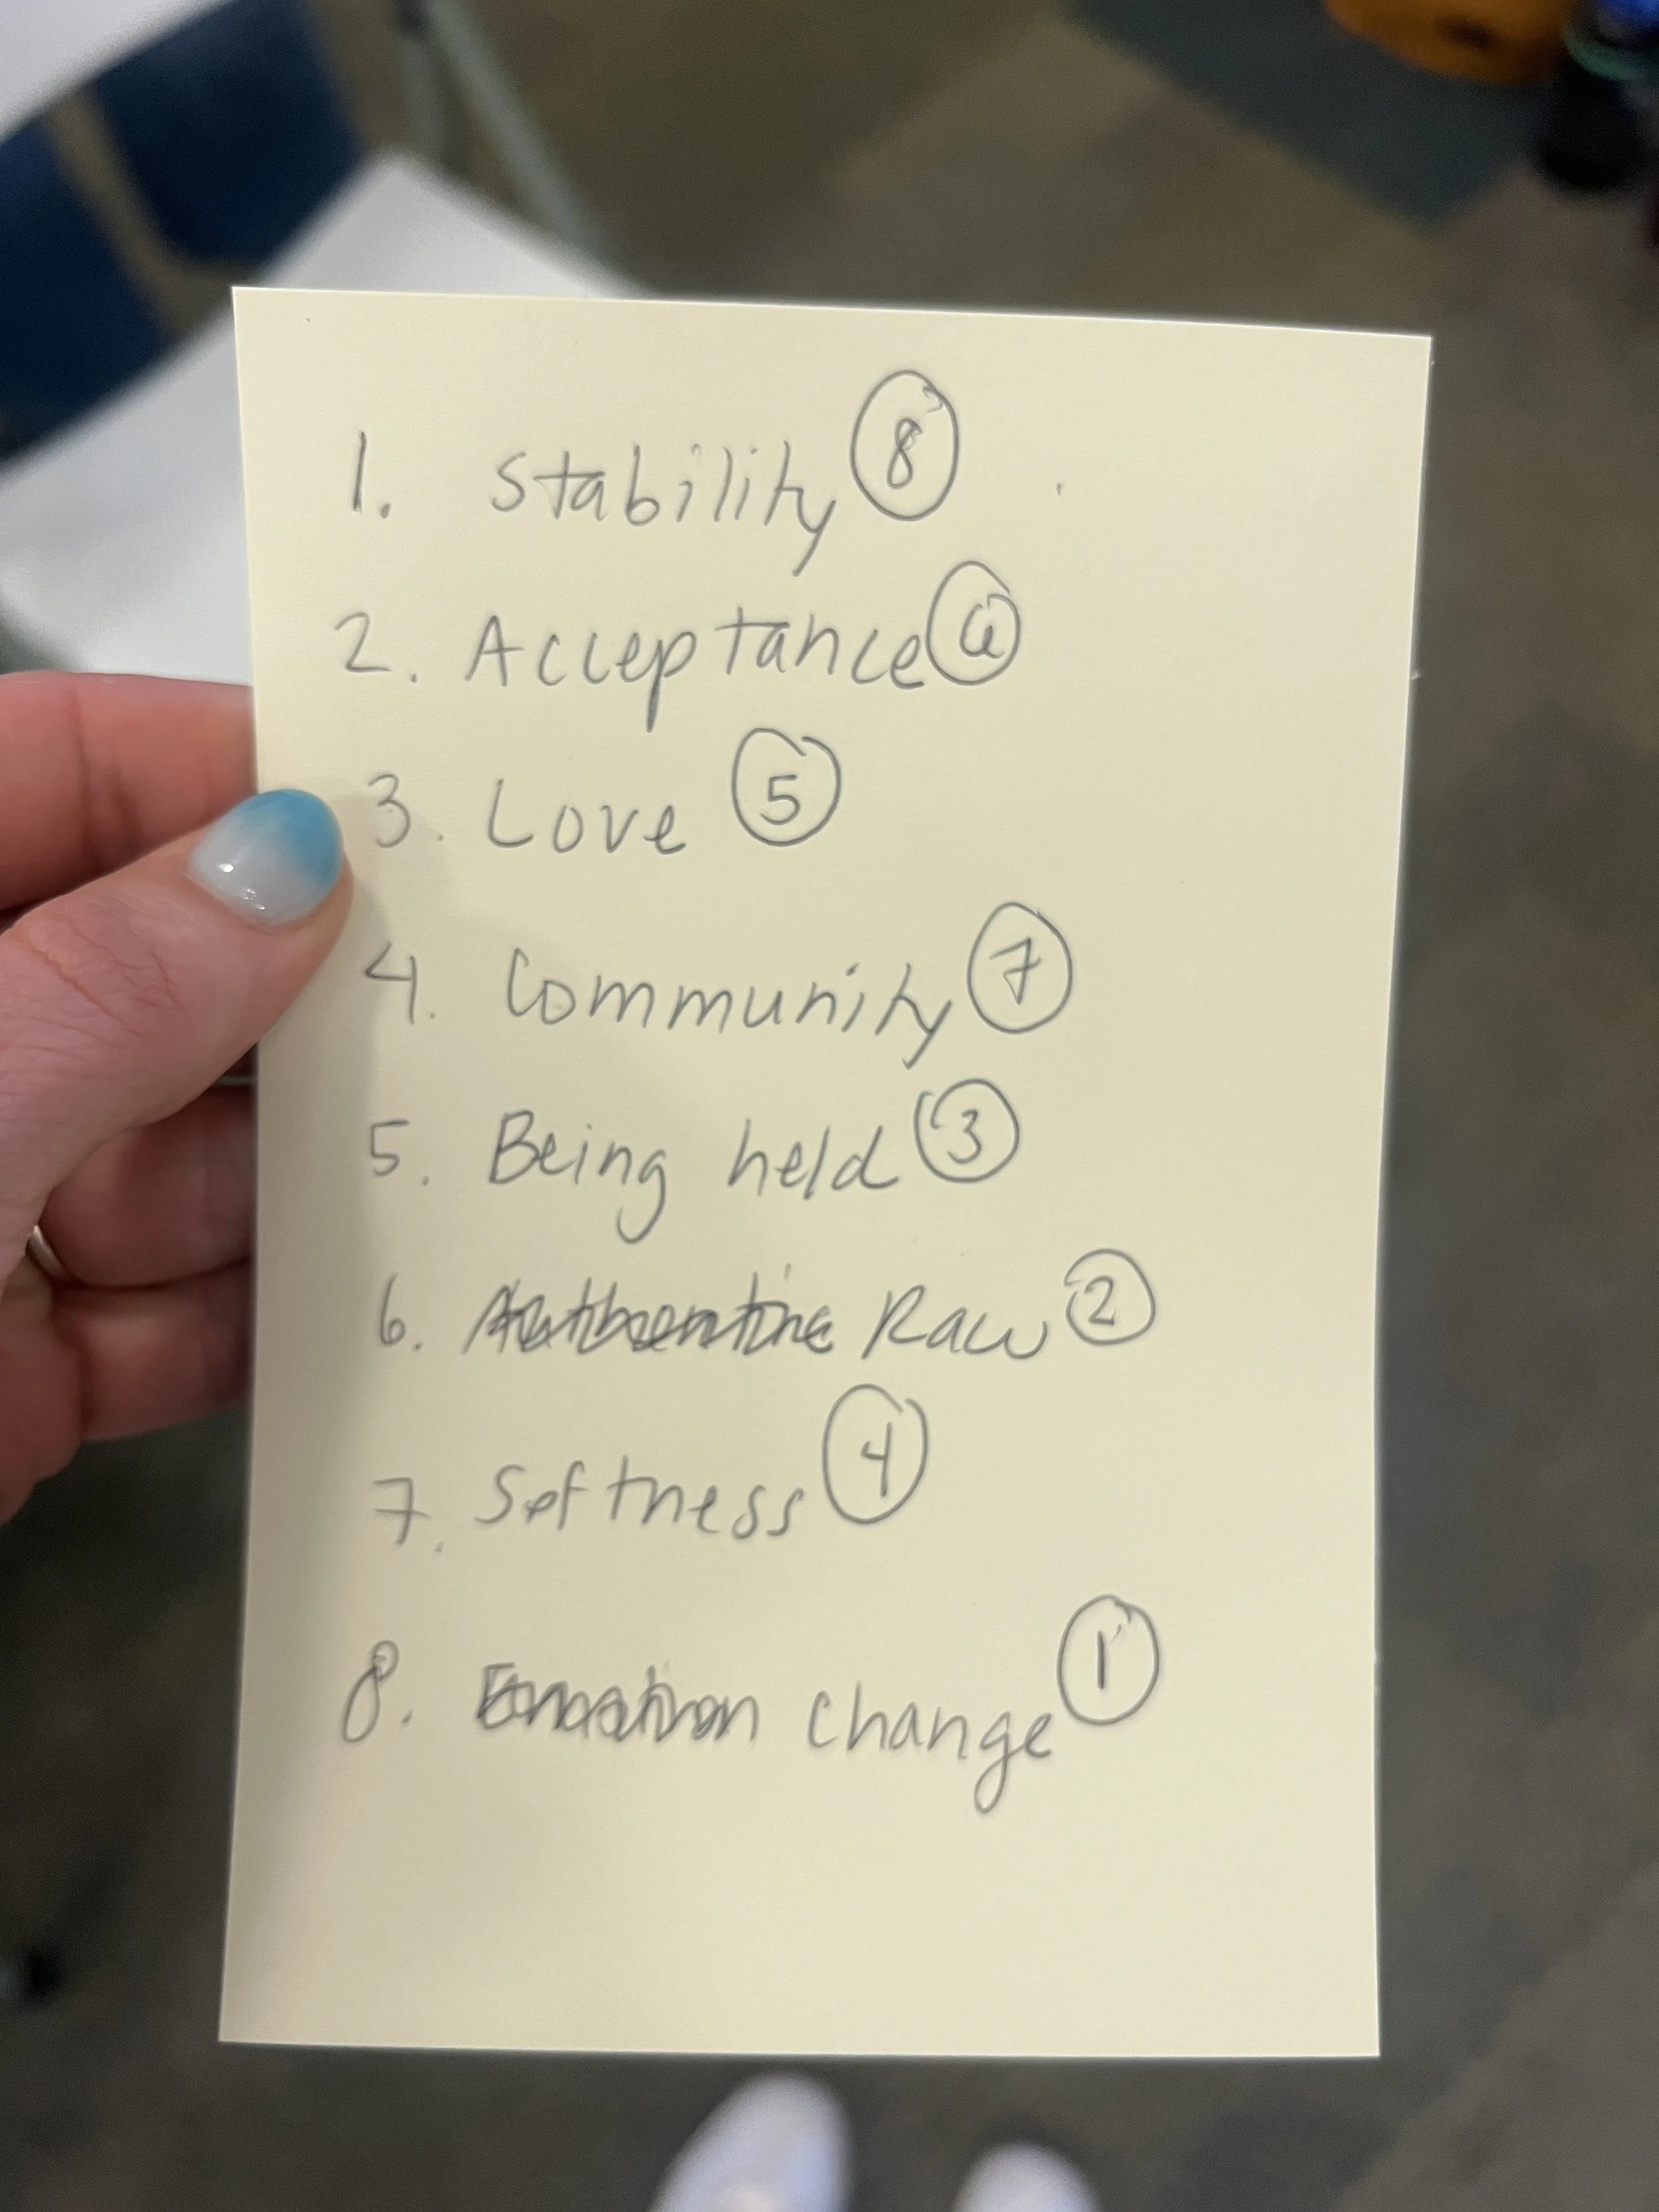 1. Stability 8
2. Acceptance 6
3. Love 5
4. Community 7
5. Being held 3
6. Authentic Raw 2
7. Softness 4
8. Emotion change 1